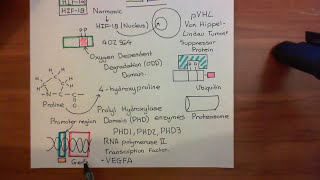 HIF-1β
Normoxic
HIF-1β (Nucleus)
pVHL
Von Hippel-
Lindau Tumour
Suppressor
Protein
402 564
Oxygen Dependent
Degradation (ODD)
Domain.
4-hydroxyproline
Proline
Ubiquitin
Prolyl Hydroxylase
Domain (PHD) enzymes
Proteasome
Promoter region
PHD1, PHD2, PHD3
RNA polymerase II
Transcription Factor
Gene
-VEGFA